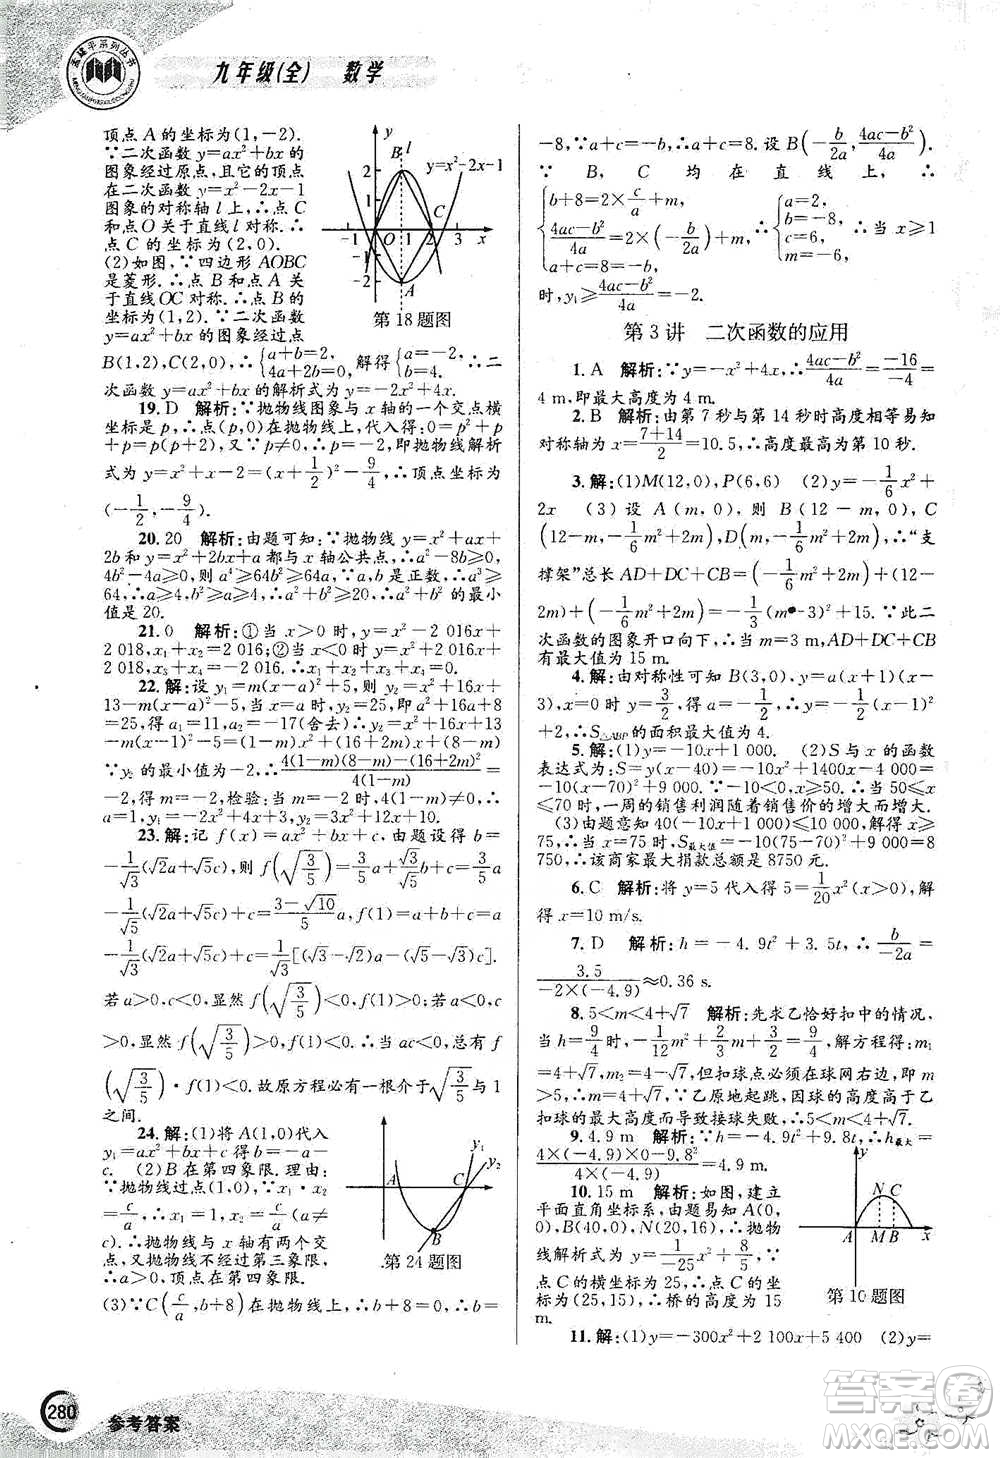 九年级(全) 数学
顶点 A 的坐标为(1,−2).
∵二次函数 y=ax²+bx 的
图象经过原点,且它的顶点
在二次函数 y=x²−2x−1
图象的对称轴 l 上,∴点 C
和点 O 关于直线 l 对称. ∴
点 C 的坐标为(2,0).
(2)如图,∵四边形 AOBC
是菱形. ∴点 B 和点 A 关
于直线 OC 对称. ∴点 B
(1,2). ∵二次函数 y=
ax²+bx 的图象经过点
B(1,2),C(2,0), ∴{a+b=2, 4a+2b=0, 解得{a=−2, b=4. ∴二
次函数 y=ax²+bx 的解析式为 y=−2x²+4x.
y l y=x²−2x−1
2 1 C −1 O 1 2 3 x −1 −2 A
第 18 题图
19. D 解析:∵抛物线图象与 x 轴的一个交点横
坐标是 p,∴抛物线过点(p,0)代入得:0=p²+
p+p=p(p+2),又∵p≠0,∴p=−2,即抛物线解析
式为 y=x²+x−2=(x+1/2)²−9/4. ∴顶点坐标为
(−1/2,−9/4).
20. 20 解析:由题可知:∵抛物线 y=x²+ax+
2b 和 y=x²+2bx+a 都与 x 轴公共点,∴a²−8b≥0,
4b²−4a≥0,则 a⁴≥64b²≥64a,∵a 是正数,∴a³≥
64,∴a≥4,b²≥a≥4,∴a²+b²≥20. ∴a²+b² 的最小
值是 20.
21. 0 解析:①当 x>0 时,y=x²−2 016x+
2 018,x₁+x₂=2 016;②当 x<0 时,y=x²+2 016x+
2 018,x₃+x₄=−2 016. ∴x₁+x₂+x₃+x₄=0.
22. 解:设 y₁=m(x−a)²+5,则 y₂=x²+16x+
13−m(x−a)²−5,当 x=a 时,y₂=a²+16a+8
=25,得 a₁=1,a₂=−17(舍去)∴y₂=x²+16x+
13−m(x−1)²−5=(1−m)x²+(16+2m)x+8−m
∵y₂ 的最小值为−2,∴4(1−m)(8−m)−(16+2m)²/4(1−m)=
−2,得 m=−2,检验:当 m=−2 时,1−m≠0,∴y₂
=3x²+12x+10.
23. 解:记 f(x)=ax²+bx+c,由题设得 b=
−1/√3(√2a+√5c),则 f(√3/5)=3/5a+√3/5b+c=3/5a
−1/√5(√2a+√5c)+c=3−√10/5a,f(1)=a+b+c=a
−1/√3(√2a+√5c)+c=1/√3[(√3−√2)a+(√3−√5)c].
若 a>0,c<0,显然 f(√3/5)<0,f(1)>0;若 a<0,c
>0,显然 f(√3/5)>0,f(1)<0. ∴当 ac<0,总有 f
(√3/5)·f(1)<0. 故原方程必有一根介于√3/5 与 1
之间.
24. 解:(1)将 A(1,0)代入
y₁=ax²+bx+c 得:b=−a−
c. (2)B 在第四象限. 理由:
∵抛物线过点(1,0),∵x₁·x₂
=c/a,∴x₁=1,x₂=c/a(a≠
c). ∴抛物线与 x 轴有两个
交点. 又∵抛物线不经过第三象限,
∴a>0,顶点在第四象限.
(3)∵C(c/a,b+8)在抛物线上,∴b+8=0,b=
y₁ y₂ C B
第 24 题图
−8,∵a+c=−b,∴a+c=8. 设 B(−b/2a,4ac−b²/4a)
∵ B, C 均在直线上, ∴
{b+8=2×c/a+m, 4ac−b²/4a=2×(−b/2a)+m, 4ac−b²/4a=0+m. ∴{a=2, b=−8, m=−6. ∴当 x≥1
时,y₁≥4ac−b²/4a=−2.
第 3 讲 二次函数的应用
1. A 解析:∵y=−x²+4x,∴4ac−b²/4a=−16/−4=
4 m,即最大高度为 4 m.
2. B 解析:由第 7 秒与第 14 秒时高度相等易知
对称轴为 x=7+14/2=10.5,∴高度最高为第 10 秒.
3. 解:(1)M(12,0),P(6,6) (2)y=−1/6x²+
2x (3)设 A(m,0),则 B(12−m,0),C
(12−m,−1/6m²+2m),D(m,−1/6m²+2m),∴“支
撑架”总长 AD+DC+CB=(−1/6m²+2m)+(12−
2m)+(−1/6m²+2m)=−1/3(m−3)²+15. ∵此二
次函数的图象开口向下,∴当 m=3 时,AD+DC+CB
有最大值为 15 m.
4. 解:由对称性可知 B(3,0),又∵y=a(x+1)(x−
3),∵当 x=0 时,y=3/2,得 a=−1/2,y=−1/2(x−1)²
+2,∴S△ABP 的面积最大值为 4.
5. 解:(1)y=−10x+1 000. (2)S 与 x 的函数
表达式为:S=y(x−40)=−10x²+1400x−4 000
=−10(x−70)²+9 000. ∵−10<0. ∴当 50≤x
≤70 时,一周的销售利润随着销售价的增大而增大.
(3)由题意知 40(−10x+1 000)≤10 000,解得 x≥
75,当 x=75 时,S最大值=−10(75−70)²+9 000=8
750,∴该商家最大捐款总额是 8750 元.
6. C 解析:将 y=5 代入得 5=1/20x²(x>0),解
得 x=10 m/s.
7. D 解析:h=−4.9t²+3.5t+1.5,∴b/−2a=
3.5/−2×(−4.9)≈0.36 s.
8. 5<m<4+√7 解析:先求乙恰好扣中的情况,
当 h=9/4 时,−1/12m²+2/3m+5/3=9/4,解方程得:m₁
=4+√7,m₂=4−√7. 但扣球点必须在球网右边,即 m
>5,∴m₂=4−√7(舍去),∵乙原地起跳,因球的高
扣球的最大高度而导致接球失败,∴5<m<4+√7.
9. 4.9 m 解析:∵h=v₀t−1/2gt²,∴h最大=
4×(−4.9)×0−9.8²/4×(−4.9)=4.9.
10. 15 m 解析:如图,建立
平面直角坐标系,由题易知 A(0,
0),B(40,0),N(20,16),∴抛物
线解析式为 y=−1/25x²+8/5x. ∵
点 C 的横坐标为 25,∴点 C 坐标为
(25,15),∴桥的高度为 15
m.
y N C A M B x
第 10 题图
11. 解:(1)y=−300x²+1200x+5 400 (2)y=
280 参考答案
答案圈
MXQE.COM